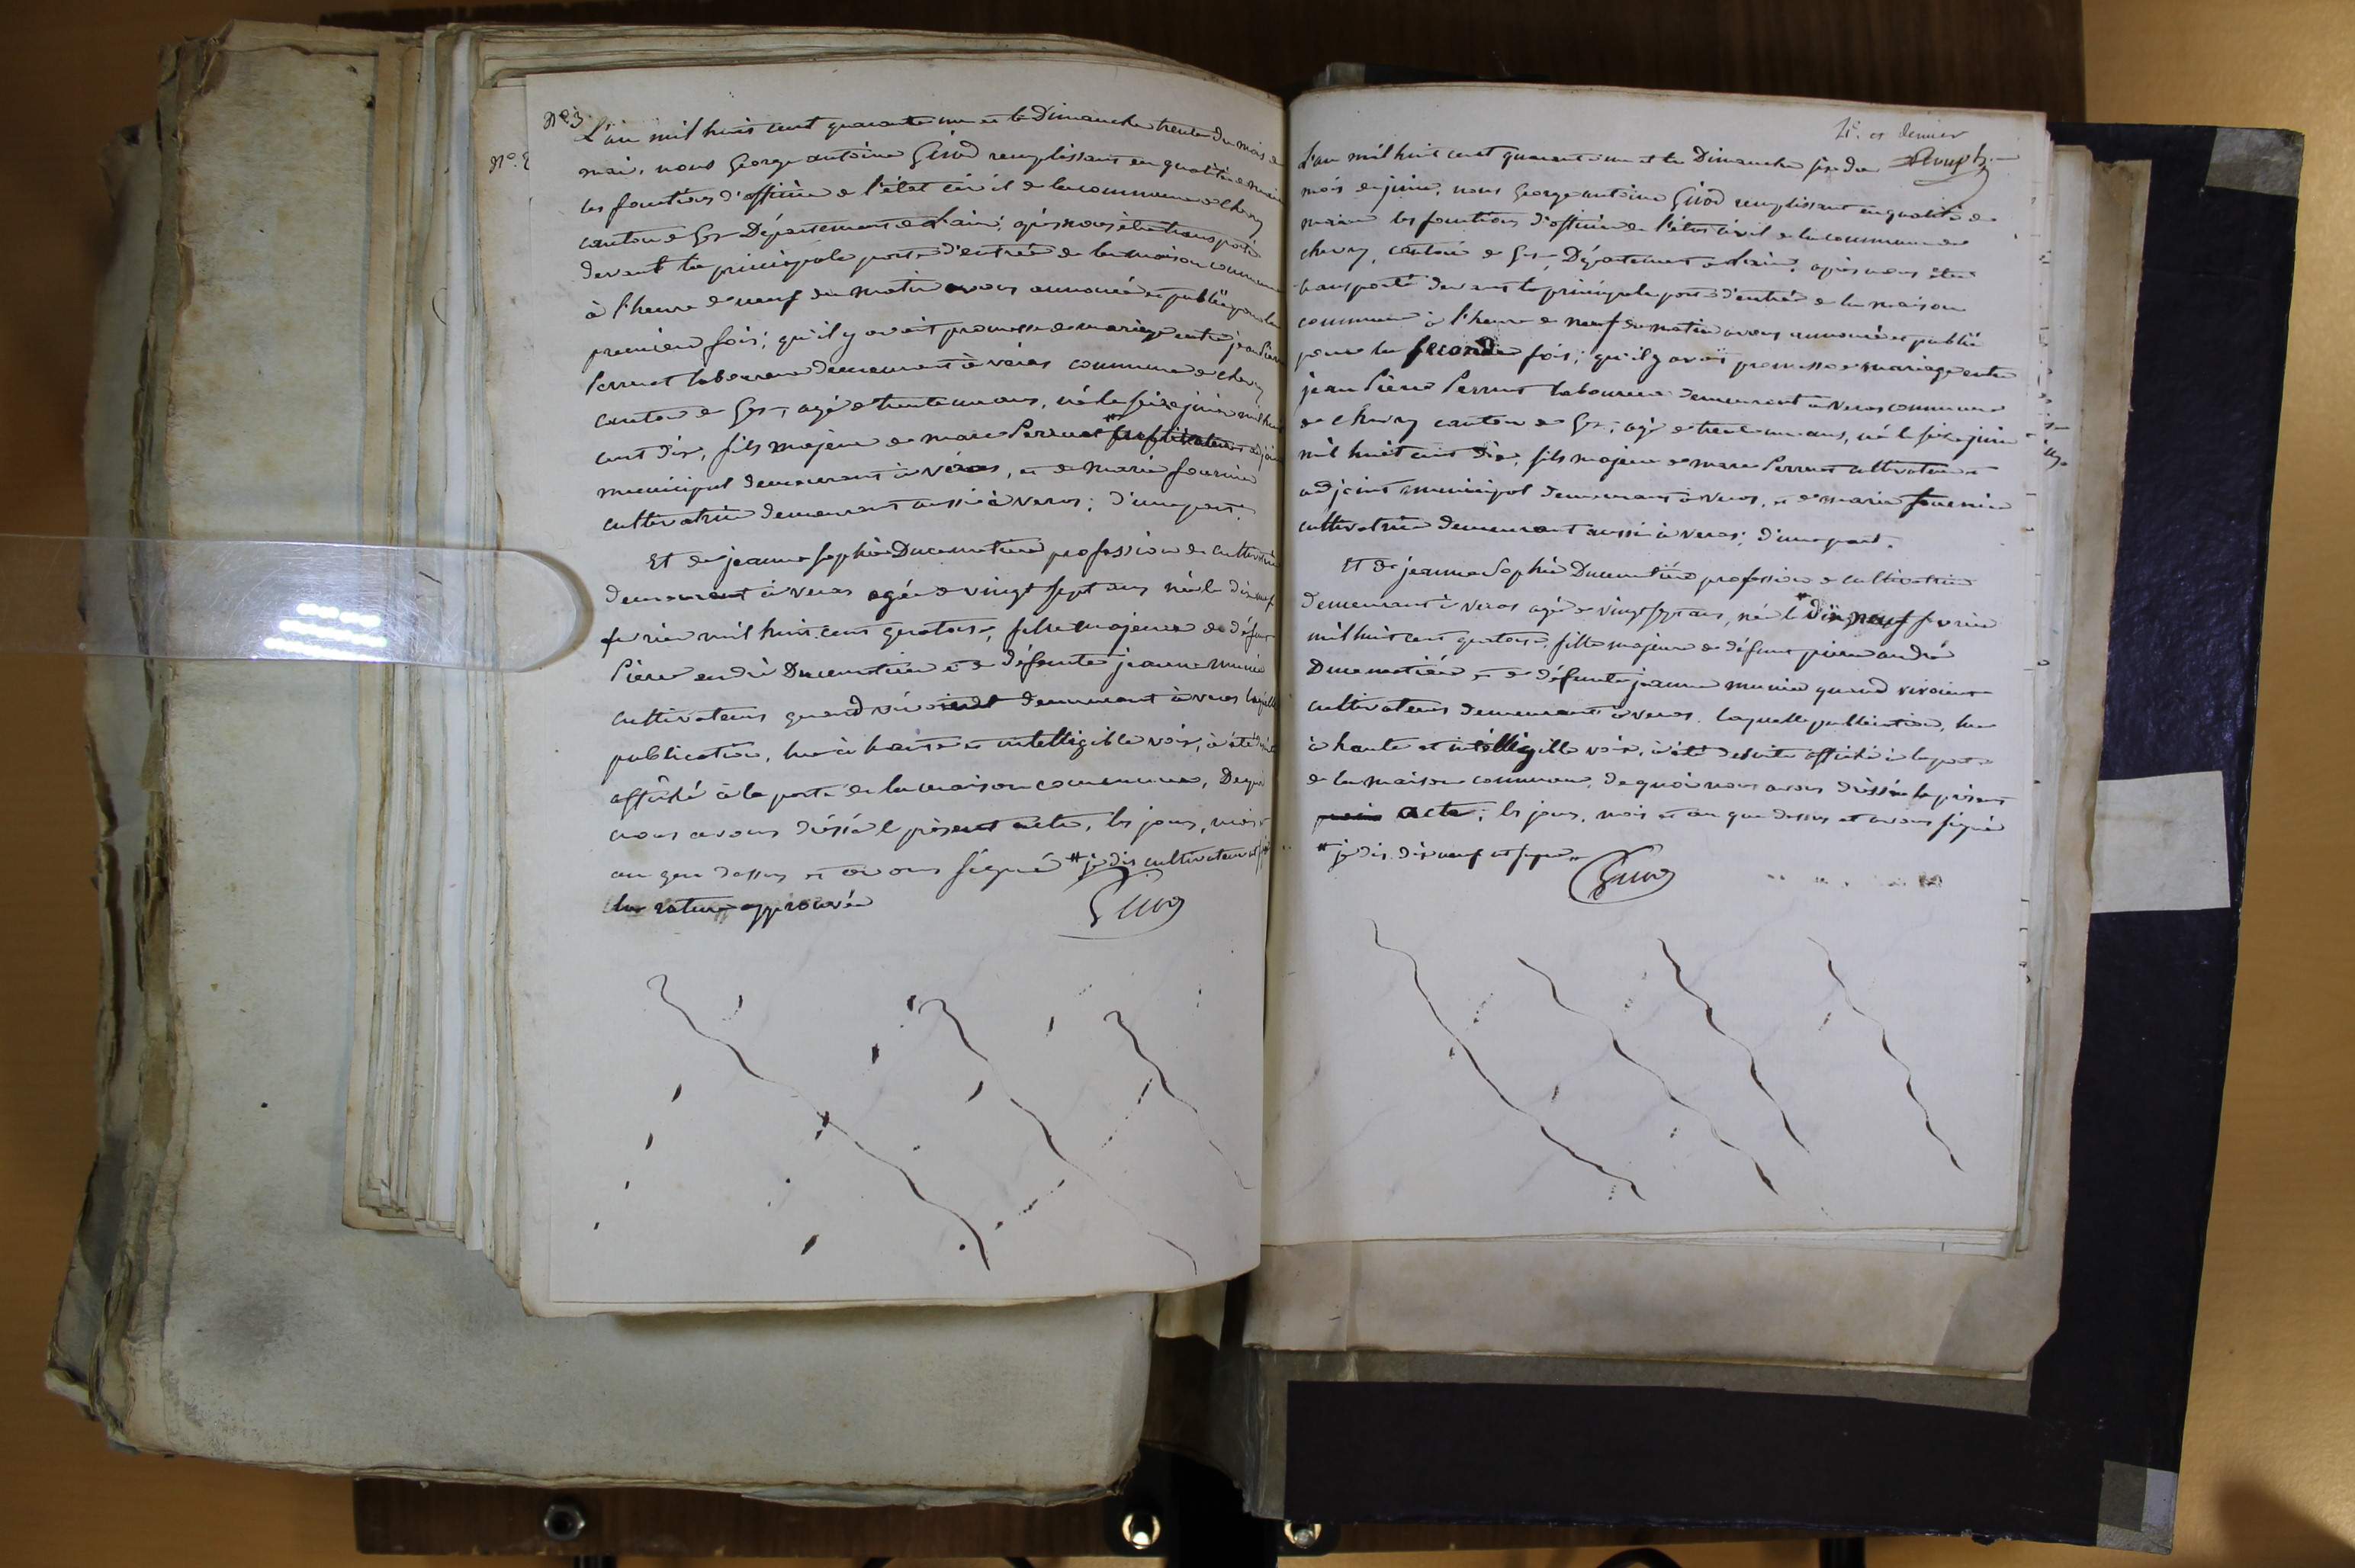 N° 3
L'an mil huit cent quarante un et le Dimanche trente du mois de
mai, nous George antoine Girod remplissant en qualité de maire
les fonctions d'officier de l'état civil de la commune de chevry
canton de Gex Département de l'ain; après nous être transporté
devant la principale porte d'entrée de la maison commune
à l'heure de neuf du matin avons annoncé et publié pour la
première fois; qu'il y avait promesse de mariage entre jean Pierre
Perruet laboureur demeurant à véras commune de chevry
canton de Gex, agé de trente un ans, né le seize juin mil huit
cent dix, fils majeur de marc Perruet # adjoint
municipal demeurant à véras, et de marie fournier
cultivatrice demeurant aussi à veras; d'une part.
Et de jeanne Sophie Ducimetière profession de cultivatrice
demeurant à veras agée de vingt sept ans née le dix neuf
fevrier mil huit cent quatorze, fille majeure de défunt
Pierre andré Ducimetière et de défunte jeanne munier
cultivateurs quand vivaient demeurant à veras laquelle
publication, lue à haute et intelligible voix, à été
affiché à la porte de la maison commune, De quoi
nous avons dréssé le présent acte, les jour, mois et
an que dessus et avons signé # je dis cultivateur et
la rature approuvée
Girod
N°
4e. et dernier
L'an mil huit cent quarante un et le Dimanche six du
mois de juin, nous George antoine Girod remplissant en qualité de
maire les fonctions d'officier de l'état civil de la commune de
chevry, canton de Gex, Département de l'ain, après nous être
transporté devant la principale porte d'entrée de la maison
commune à l'heure de neuf du matin avons annoncé et publié
pour la seconde fois; qu'il y avait promesse de mariage entre
jean Pierre Perruet laboureur demeurant à veras commune
de chevry canton de Gex, agé de trente un ans, né le seize juin
mil huit cent dix, fils majeur de marc Perruet cultivateur et
adjoint municipal demeurant à veras, et de marie fournier
cultivatrice demeurant aussi à veras; d'une part.
Et de jeanne Sophie Ducimetière profession de cultivatrice
demeurant à veras agée de vingt sept ans, née le # dix neuf fevrier
mil huit cent quatorze, fille majeure de défunt pierre andré
Ducimetière et de défunte jeanne munier quand vivaient
cultivateurs demeurant à veras. laquelle publication, lue
à haute et intélligible voix, à été de suite affiché à la porte
de la maison commune, de quoi nous avons dréssé le présent
acte; les jour, mois et an que dessus et avons signé
# je dis dix neuf
Girod